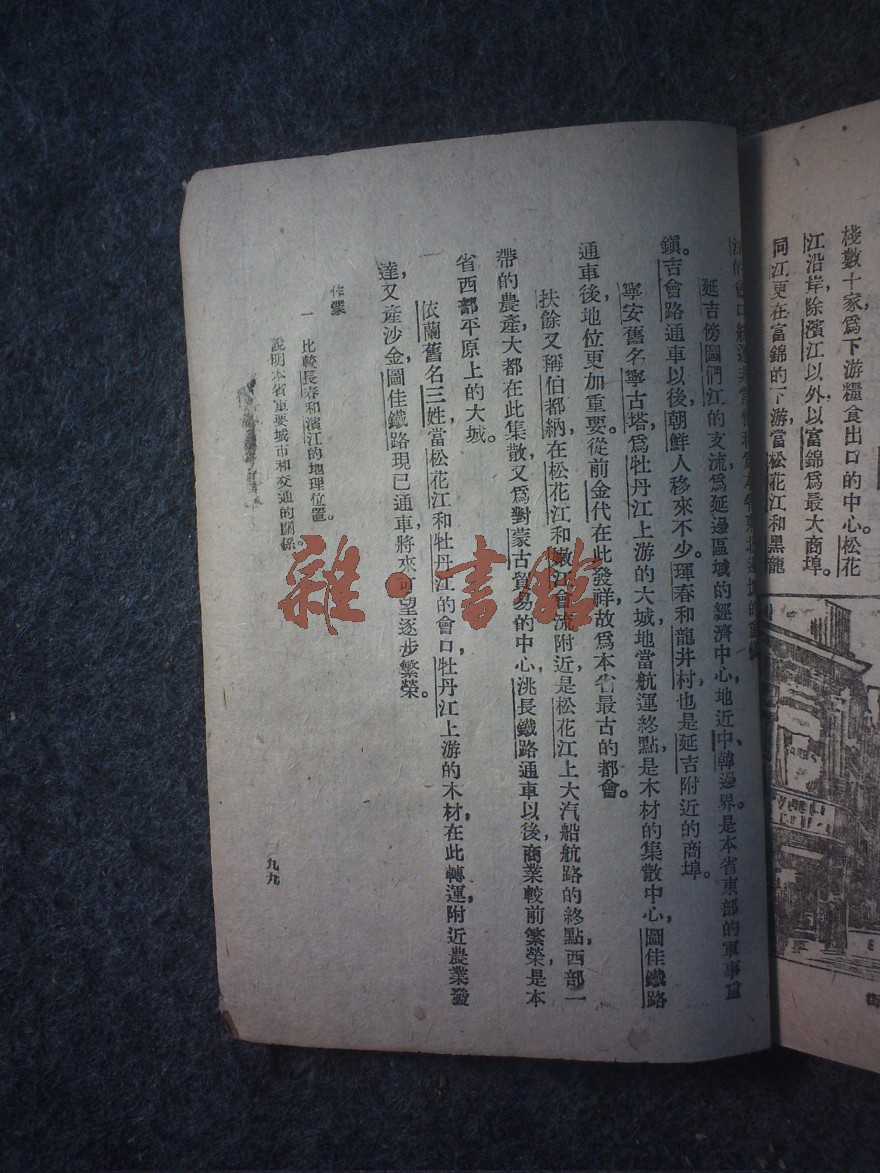 棧數十家爲下游糧食出口的中心松花
江沿岸除濱江以外以富錦爲最大商埠。
同江更在富錦的下游當松花江和黑龍
延吉傍圖們江的支流爲延邊區域的經濟中心地近中、韓邊界是本省東部的軍事重
鎭。吉會路通車以後，朝鮮人移來不少。琿春和龍井村，也是延吉附近的商埠。
寧安舊名寧古塔，爲牡丹江上游的大城地當航運終點，是木材的集散中心，圖佳鐵路
通車後，地位更加重要。從前金代在此發祥，故爲本省最古的都會。
扶餘又稱伯都納，在松花江和嫩江會流附近，是松花江上大汽船航路的終點，西部一
帶的農產，大都在此集散，又爲對蒙古貿易的中心，洮長鐵路通車以後，商業較前繁榮，是本
省西部平原上的大城。
依蘭舊名三姓，當松花江和牡丹江的會口，牡丹江上游的木材，在此轉運，附近農業發
達，又產沙金，圖佳鐵路現已通車，將來可望逐步繁榮。
作業
一 比較長春和濱江的地理位置。
說明本省重要城市和交通的關係。
九九
雜·書館